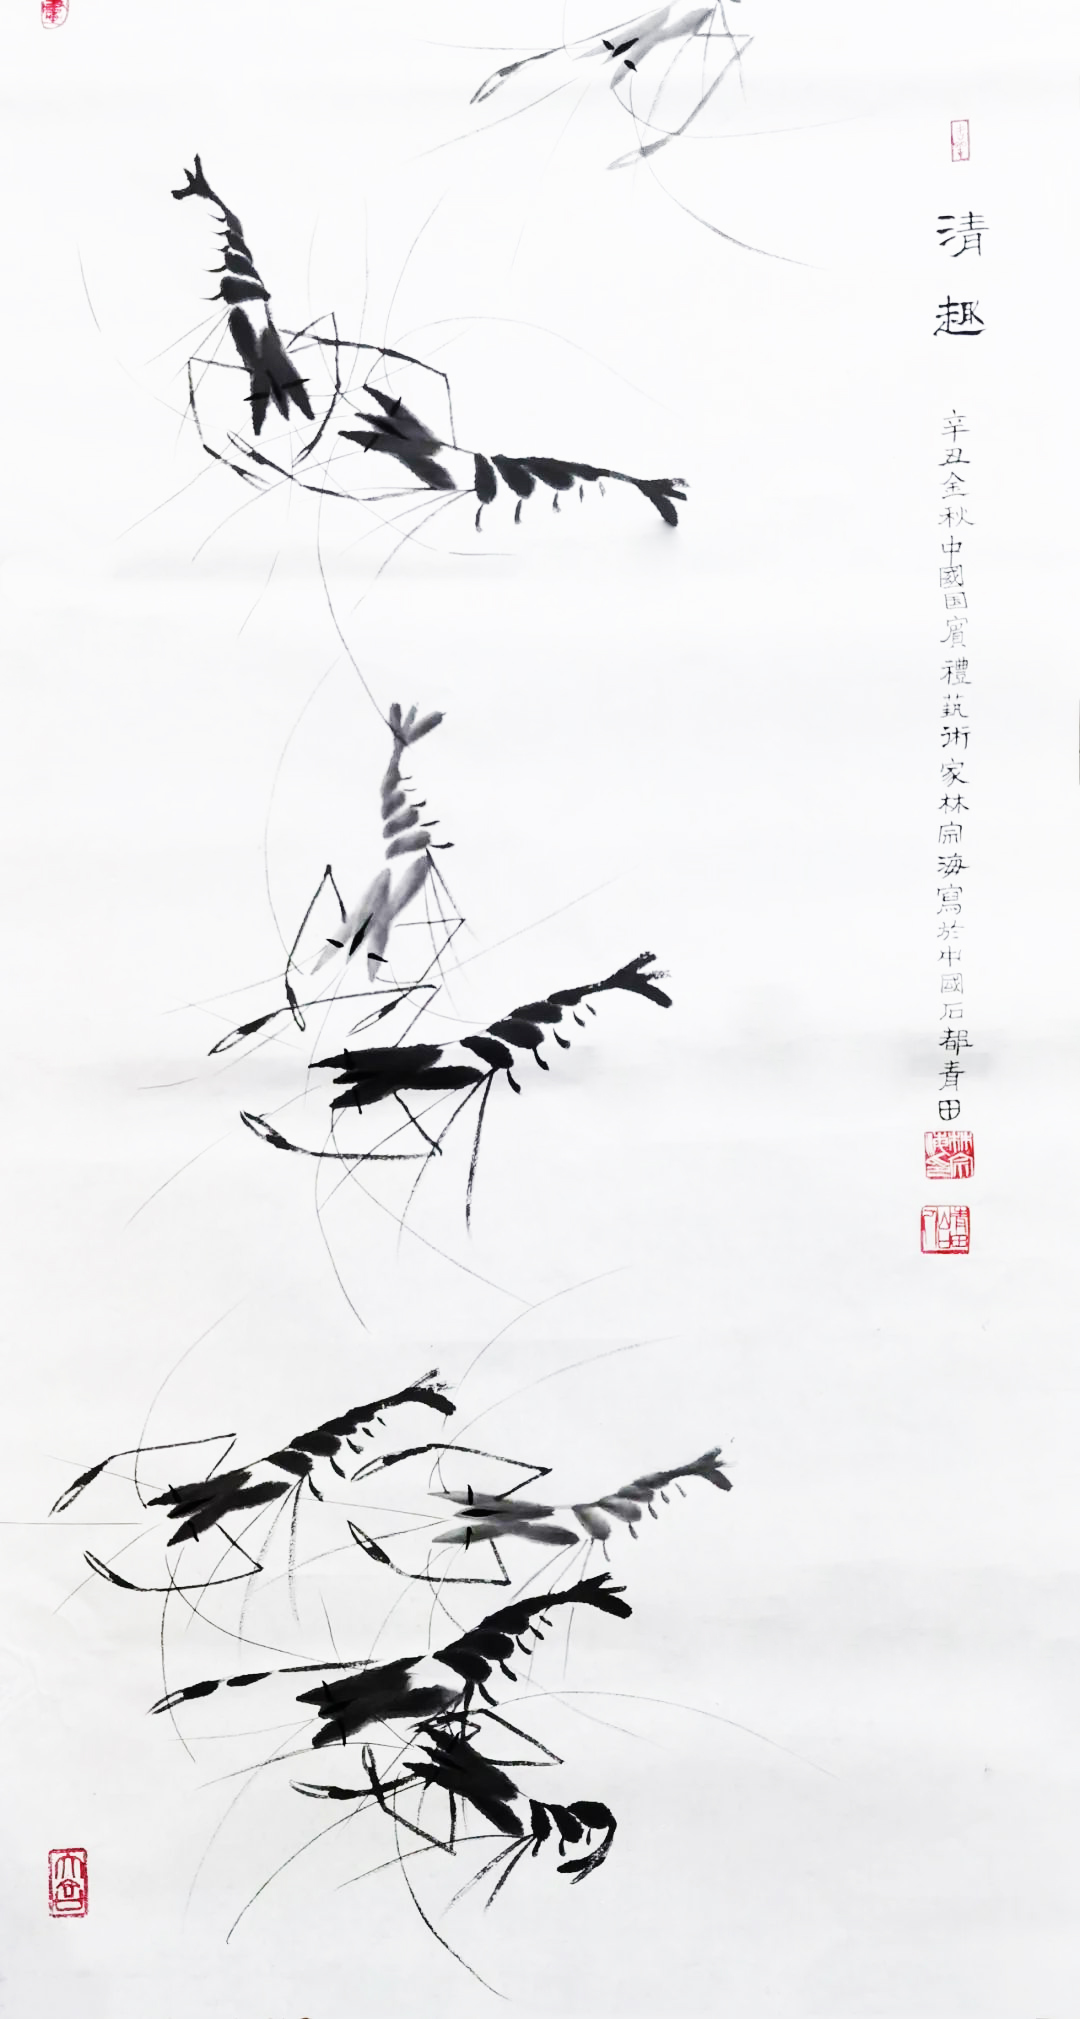 清趣
辛丑金秋中國国賓禮藝術家林宗海寫於中國石都青田
林宗海印